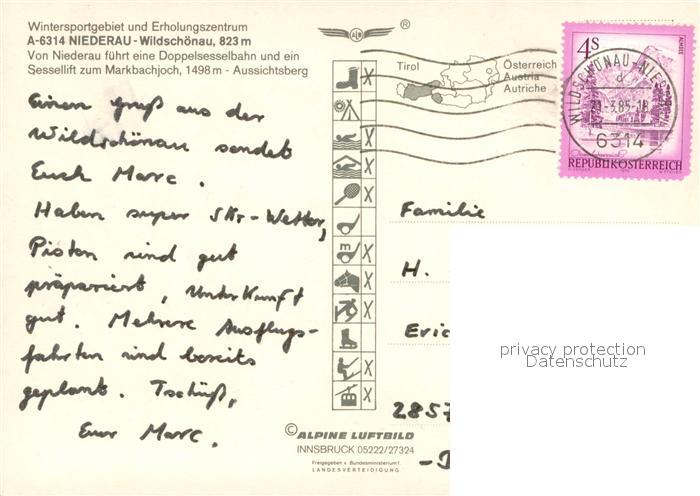 Wintersportgebiet und Erholungszentrum
A-6314 NIEDERAU - Wildschönau, 823 m
Von Niederau führt eine Doppelsesselbahn und ein
Sessellift zum Markbachjoch, 1498 m - Aussichtsberg
Einen Gruß aus der
Wildschönau sendet
Euch Marc.
Haben super Ski-Wetter,
Pisten sind gut
präpariert, Unterkunft
gut. Mehrere Ausflugs-
fahrten sind bereits
geplant. Tschüß,
Euer Marc.
®
Tirol
Österreich
Austria
Autriche
4S
ALMSEE
WILDSCHÖNAU-NIE
d
-3.85-18
6314
REPUBLIK ÖSTERREICH
m
Familie
H.
Eric
2857
-D
privacy protection
Datenschutz
© ALPINE LUFTBILD
INNSBRUCK 05222/27324
Freigegeben v. Bundesministerium f.
LANDESVERTEIDIGUNG